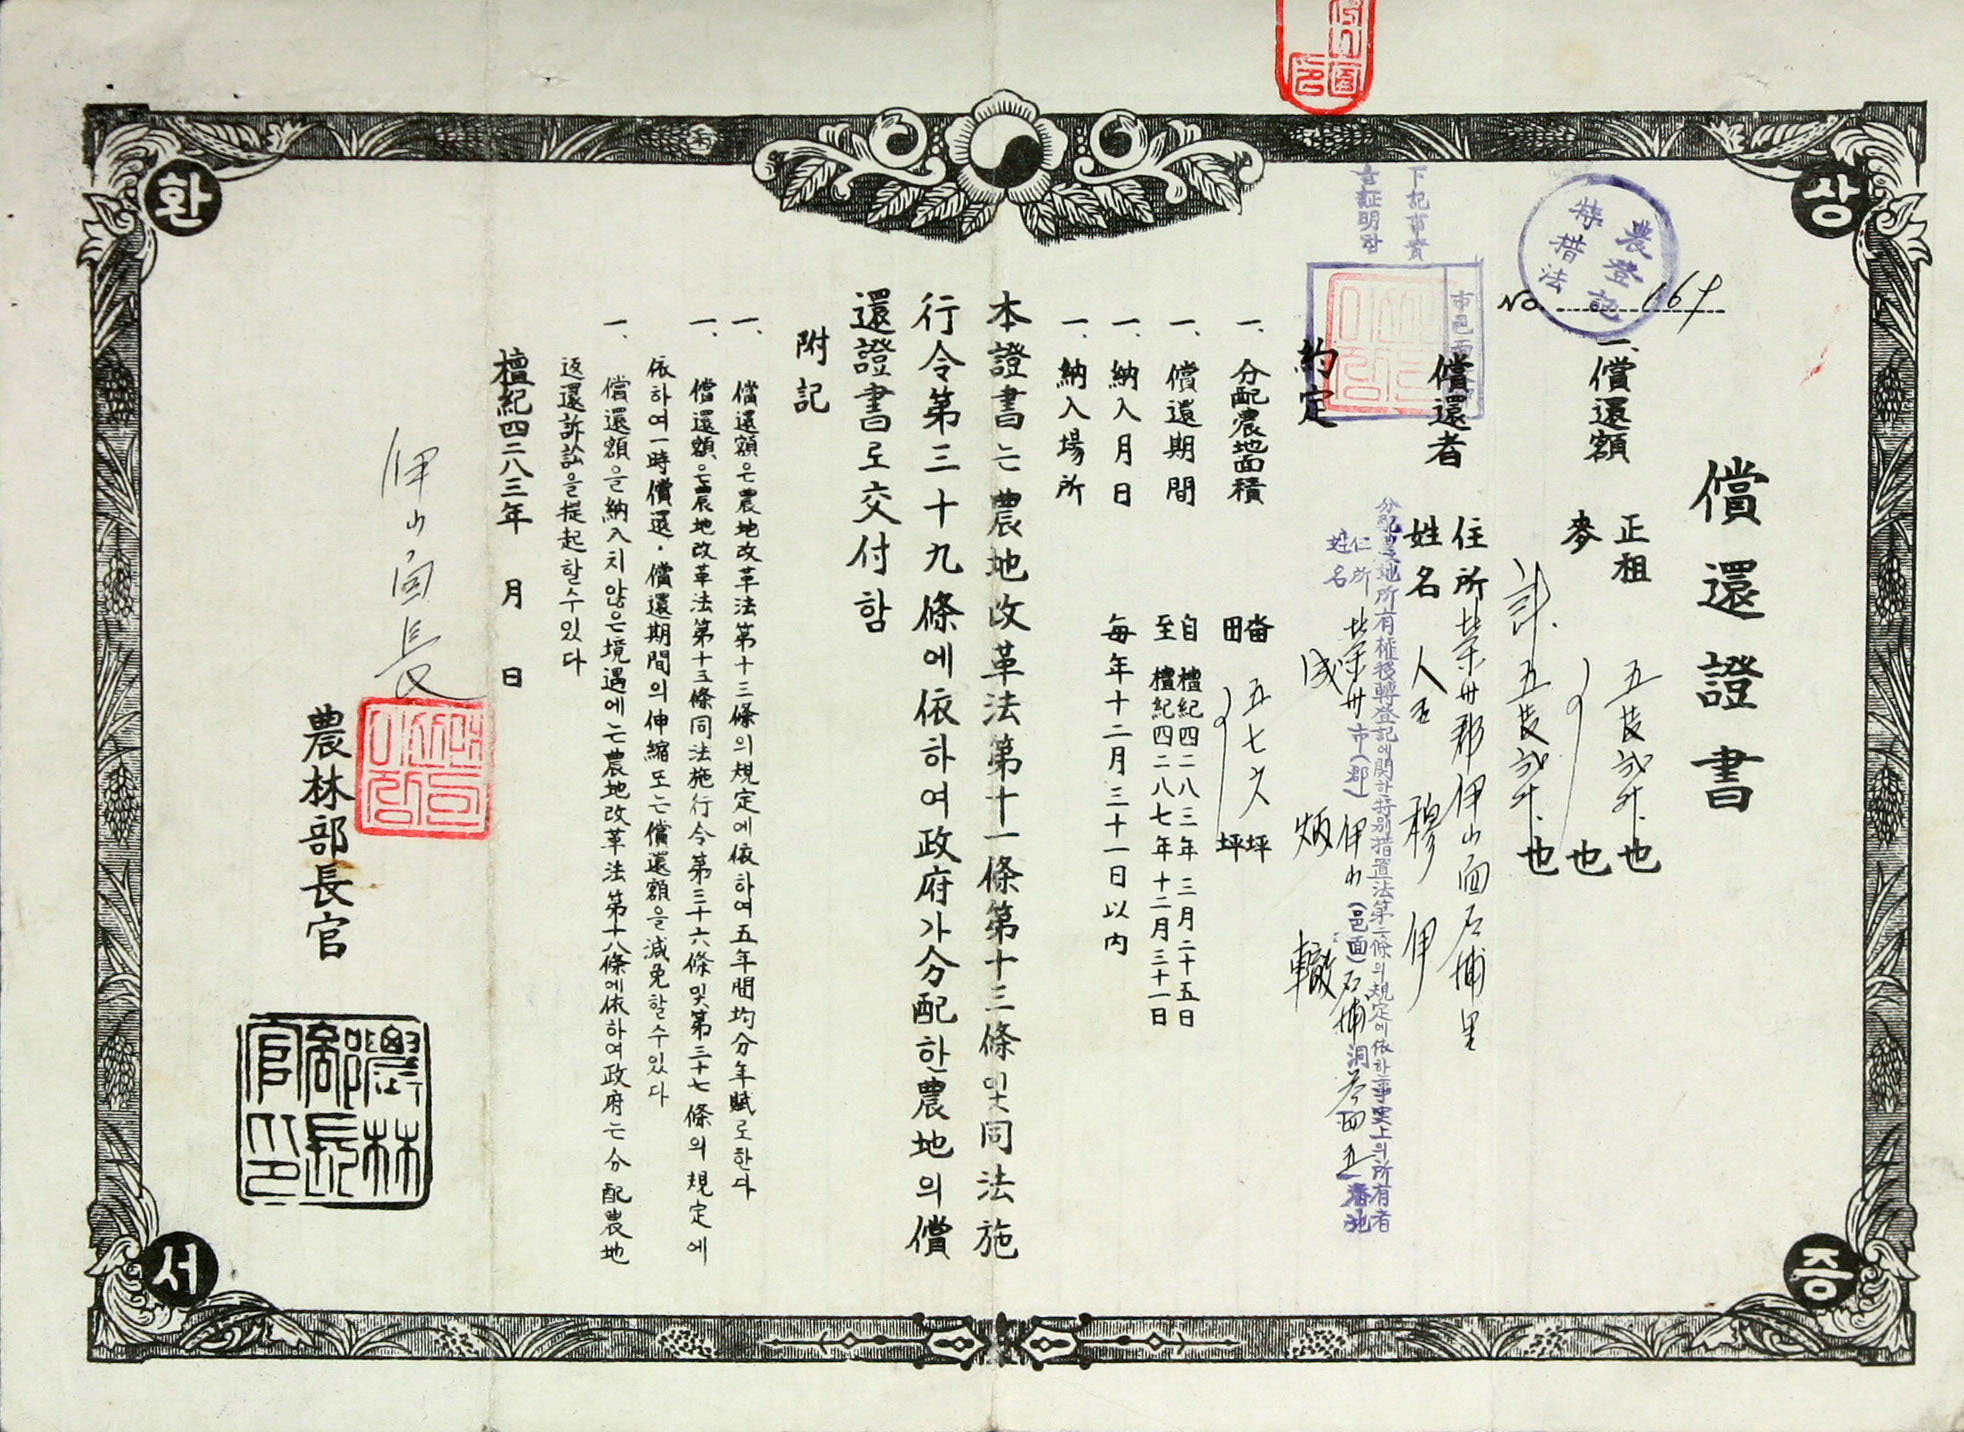 상
환
증
서
償還證書
農登記
特措法
No. 169
一、償還額
正祖 五
也
麥
也
計 五
也
償還者
住所 榮州郡伊山面石浦里
姓名
約定
下記事實
을証明함
市邑面
分配農地所有權移轉登記에関한特別措置法第六條의規定에依한事実上의所有者
住所 榮州市(郡)伊山(邑面)石浦洞 番地
姓名 成炳轍
一、分配農地面積
畓 五七六坪
田 坪
一、償還期間
自檀紀四二八三年三月二十五日
至檀紀四二八七年十二月三十一日
一、納入月日
每年十二月三十一日以内
一、納入場所
本證書는農地改革法第十一條第十三條및同法施
行令第三十九條에依하여政府가分配한農地의償
還證書로交付함
附記
一、償還額은農地改革法第十三條의規定에依하여五年間均分年賦로한다
一、償還額은農地改革法第十三條同法施行令第三十六條및第三十七條의規定에
依하여一時償還·償還期間의伸縮또는償還額을減免할수있다
一、償還額을納入치않은境遇에는農地改革法第十八條에依하여政府는分配農地
返還訴訟을提起할수있다
檀紀四二八三年 月 日
伊山面長
農林部長官
農林部長官印